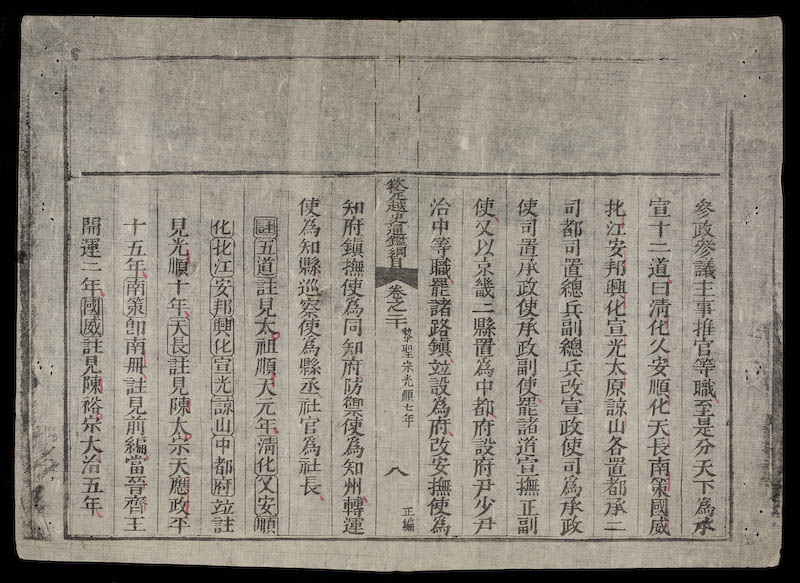 參政參議主事推官等職至是分天下為承
宣十二道曰淸化乂安順化天長南策國威
北江安邦興化宣光太原諒山各置都承二
司都司置總兵副總兵改宣政使司為承政
使司置承政使承政副使罷諸道宣撫正副
使又以京畿二縣置為中都府設府尹少尹
治中等職罷諸路鎮竝設為府改安撫使為
欽定越史通鑑綱目 卷之二十 黎聖宗光順七年 八 正編
知府鎮撫使為同知府防禦使為知州轉運
使為知縣巡察使為縣丞社官為社長
註五道註見太祖順天元年淸化乂安順
化北江安邦興化宣光諒山中都府竝註
見光順十年天長註見陳太宗天應政平
十五年南策卽南冊註見前編當晉齊王
開運二年國威註見陳裕宗大治五年